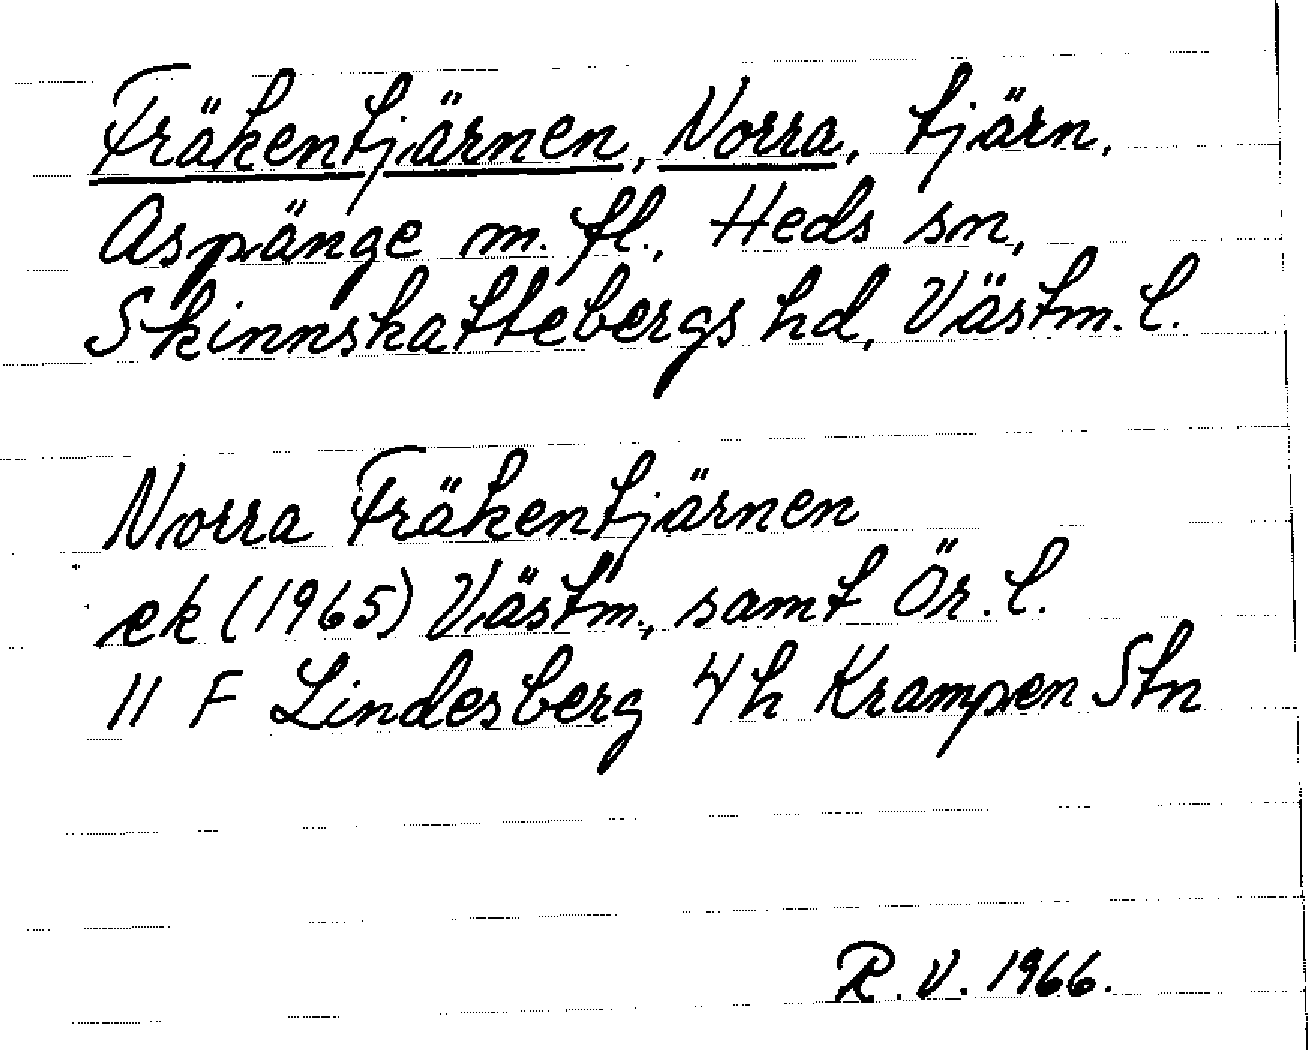 Fräkentjärnen, Norra, tjärn,
Aspänge m. fl., Heds sn,
Skinnskattebergs hd, Västm. l.
Norra Fräkentjärnen
ek (1965) Västm., samt Ör. l.
11 F Lindesberg 4h Krampen Stn
R. V. 1966.